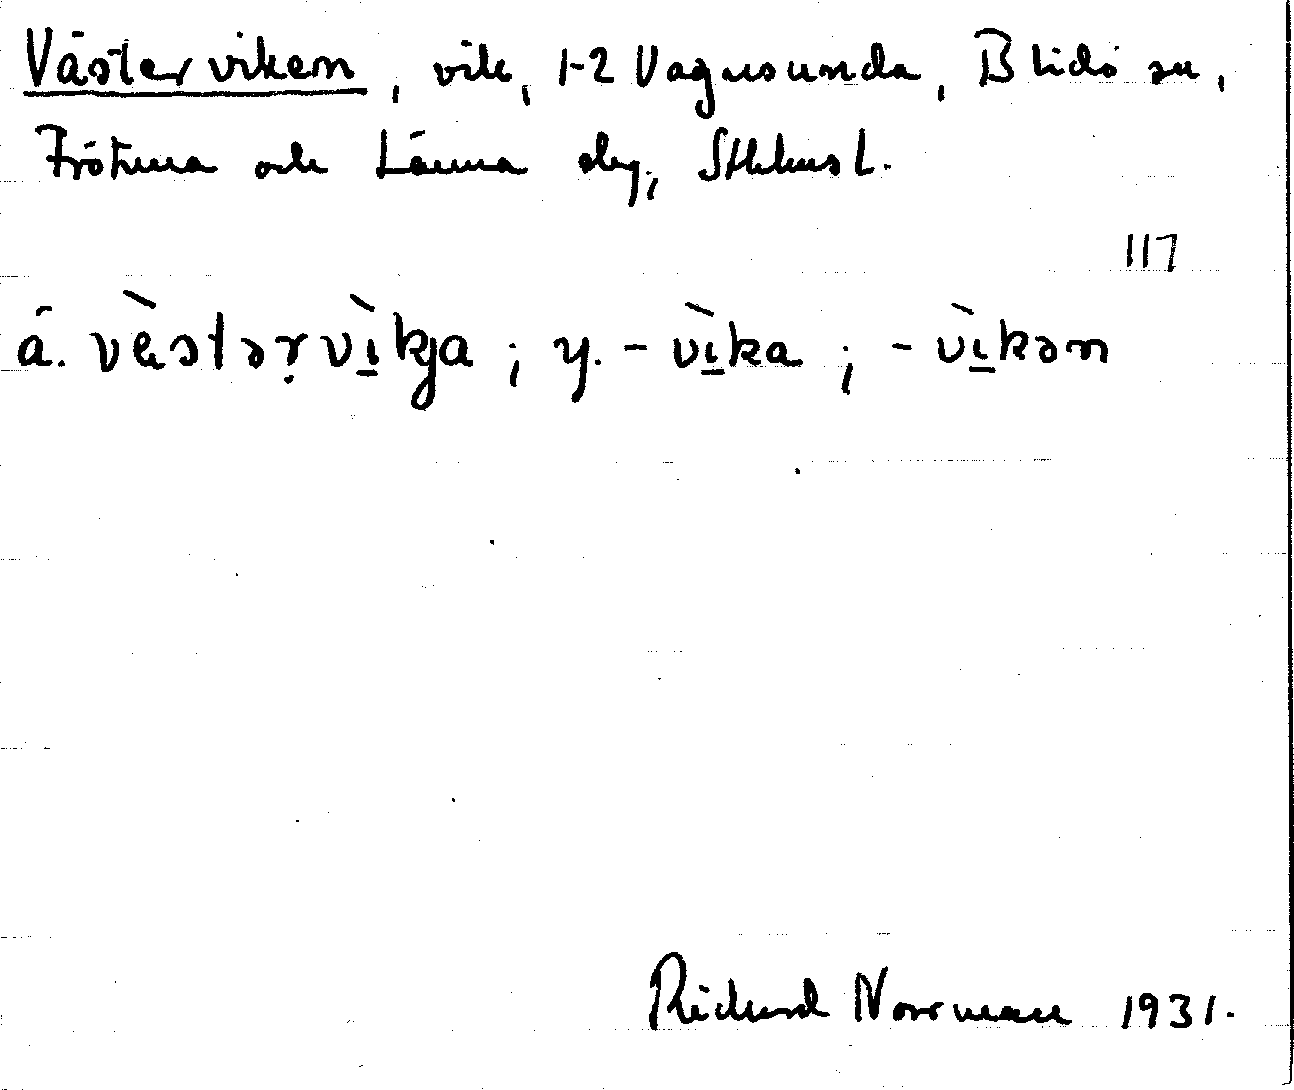 Västerviken, vik, 1-2 Vagnsunda, Blidö sn,
Frötuna och Länna slg, Sthlms l.
117
ä. vὲstərvìkja ; y. -vìka ; -vìkən
Rickard Norrman 1931.